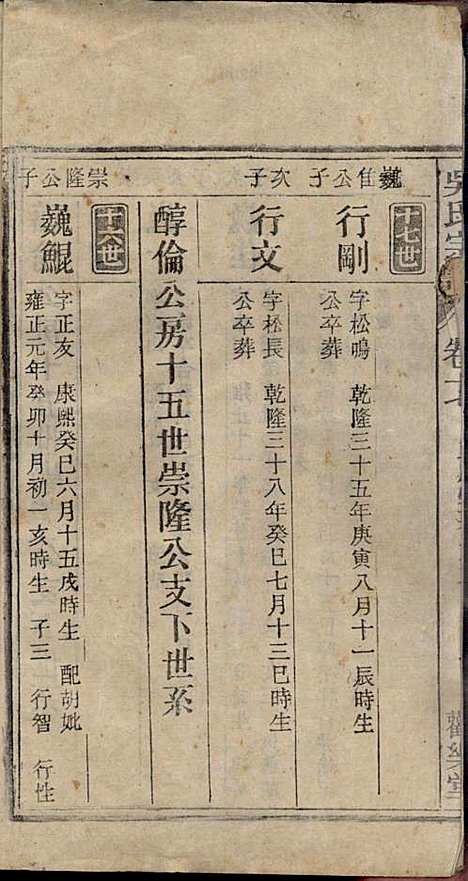 吳氏宗
卷十
巍隹公子
十七世
行剛
字松鳴 乾隆三十五年庚寅八月十一辰時生
公卒葬
次子
行文
字松長 乾隆三十八年癸巳七月十三巳時生
公卒葬
醇倫公房十五世崇隆公支下世系
崇隆公子
十六世
巍鯤
字正友 康熙癸巳六月十五戌時生 配胡妣
雍正元年癸卯十月初一亥時生 子三 行智 行性